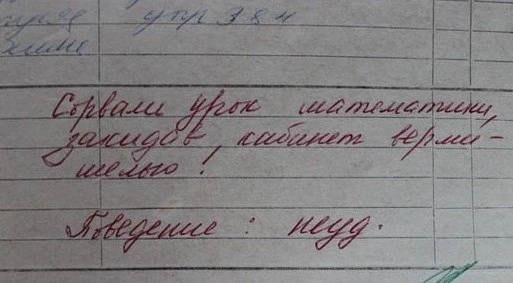 упр 38н
Сорвали урок математики,
закидав кабинет верми-
шелью!
Поведение: неуд.